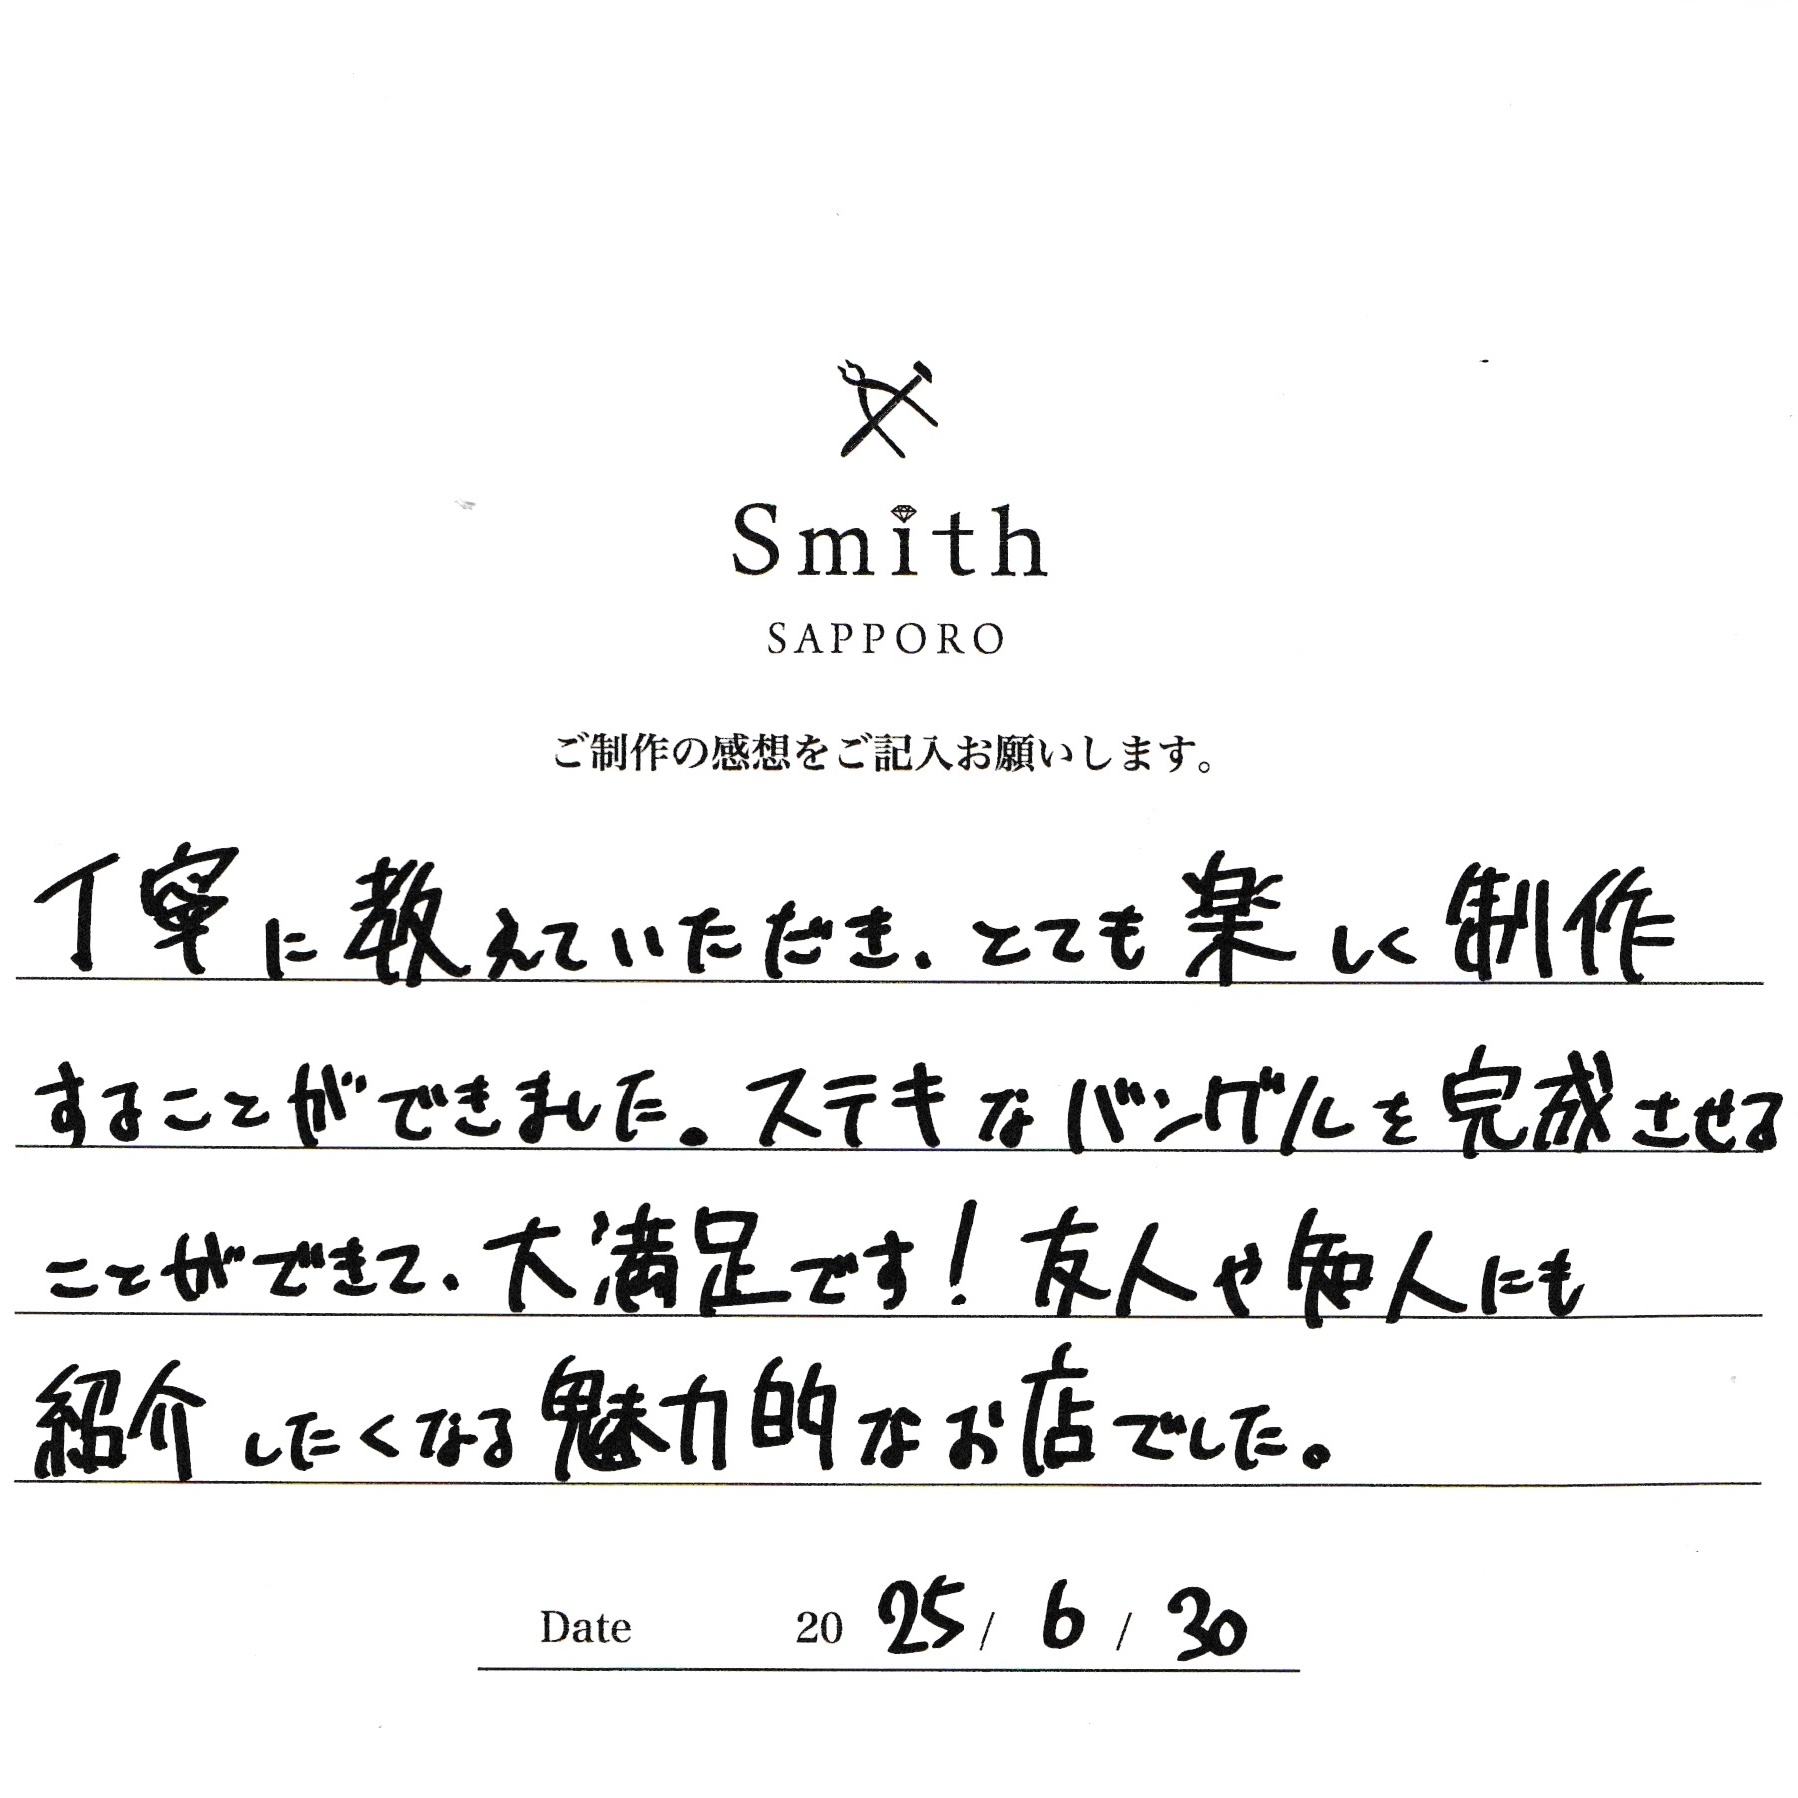 Smith
SAPPORO
ご制作の感想をご記入お願いします。
丁寧に教えていただき、とても楽しく制作
することができました。ステキなバングルを完成させる
ことができて、大満足です！友人や知人にも
紹介したくなる魅力的なお店でした。
Date 2025/6/30